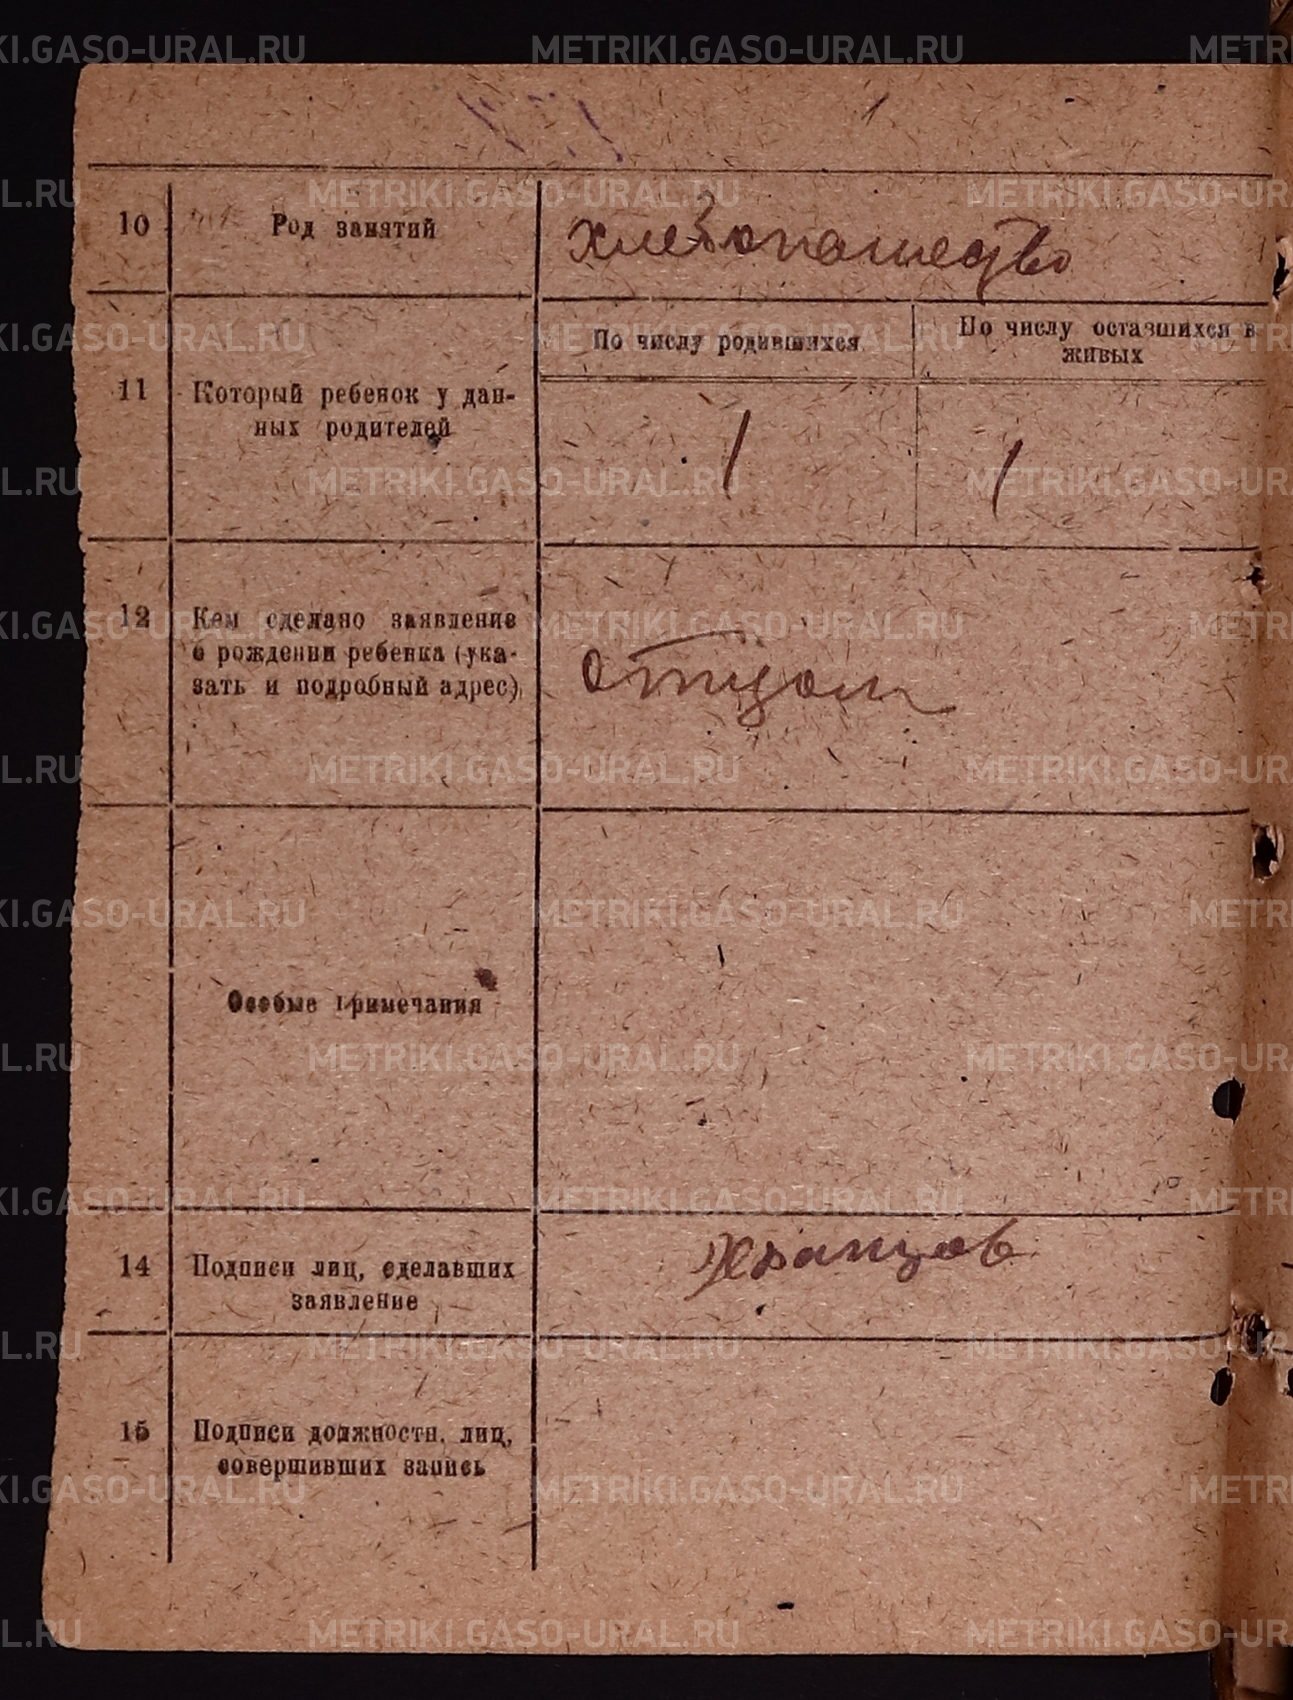 10 Род занятий хлебопашество
По числу родившихся
По числу оставшихся в
живых
11 Который ребенок у дан-
ных родителей
1 1
12 Кем сделано заявление
о рождении ребенка (ука-
зать и подробный адрес)
отцом
Особые примечания
14 Подписи лиц, сделавших
заявление
15 Подписи должностн. лиц,
совершивших запись
METRIKI.GASO-URAL.RU